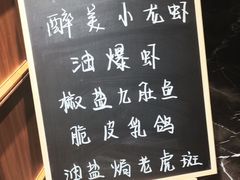 醉美小龙虾
油爆虾
椒盐九肚鱼
脆皮乳鸽
油盐焗老虎斑